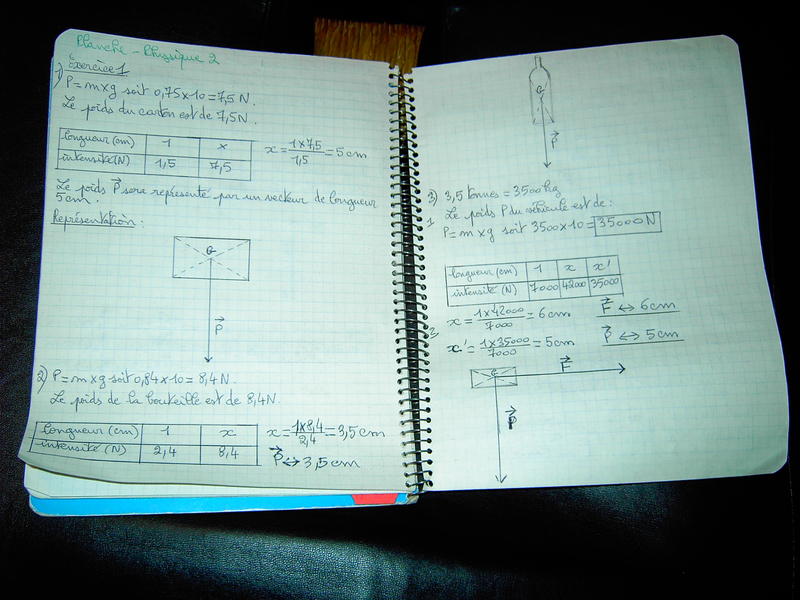 Planche - Physique 2
Exercice 1
1) P = m x g soit 0,75 x 10 = 7,5 N.
Le poids du carton est de 7,5 N.
longueur (cm) 1 x
intensité (N) 1,5 7,5
x = 1 x 7,5 / 1,5 = 5 cm
Le poids P⃗ sera représenté par un vecteur de longueur
5 cm.
Représentation :
G
P⃗
2) P = m x g soit 0,84 x 10 = 8,4 N.
Le poids de la bouteille est de 8,4 N.
longueur (cm) 1 x
intensité (N) 2,4 8,4
x = 1 x 8,4 / 2,4 = 3,5 cm
P⃗ ↔ 3,5 cm
G
P⃗
3) 3,5 tonnes = 3500 kg
1. Le poids P du véhicule est de :
P = m x g soit 3500 x 10 = 35000 N
longueur (cm) 1 x x'
intensité (N) 7000 42000 35000
2. x = 1 x 42000 / 7000 = 6 cm
F⃗ ↔ 6 cm
x' = 1 x 35000 / 7000 = 5 cm
P⃗ ↔ 5 cm
G
F⃗
P⃗